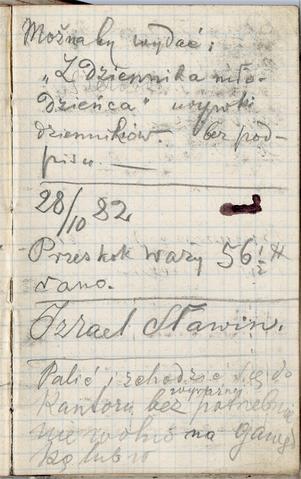 Możnaby wydać:
„Z Dziennika mło-
dzieńca" urywki
dzienników. bez pod-
pisu. —
28/10 82
Przeskok waży 56 1/2 ℔
rano.
Izrael Stawin.
Palić i schodzić się do
Kantoru bez wyraźnej potrzeby
nie wolno na ganek
lub w